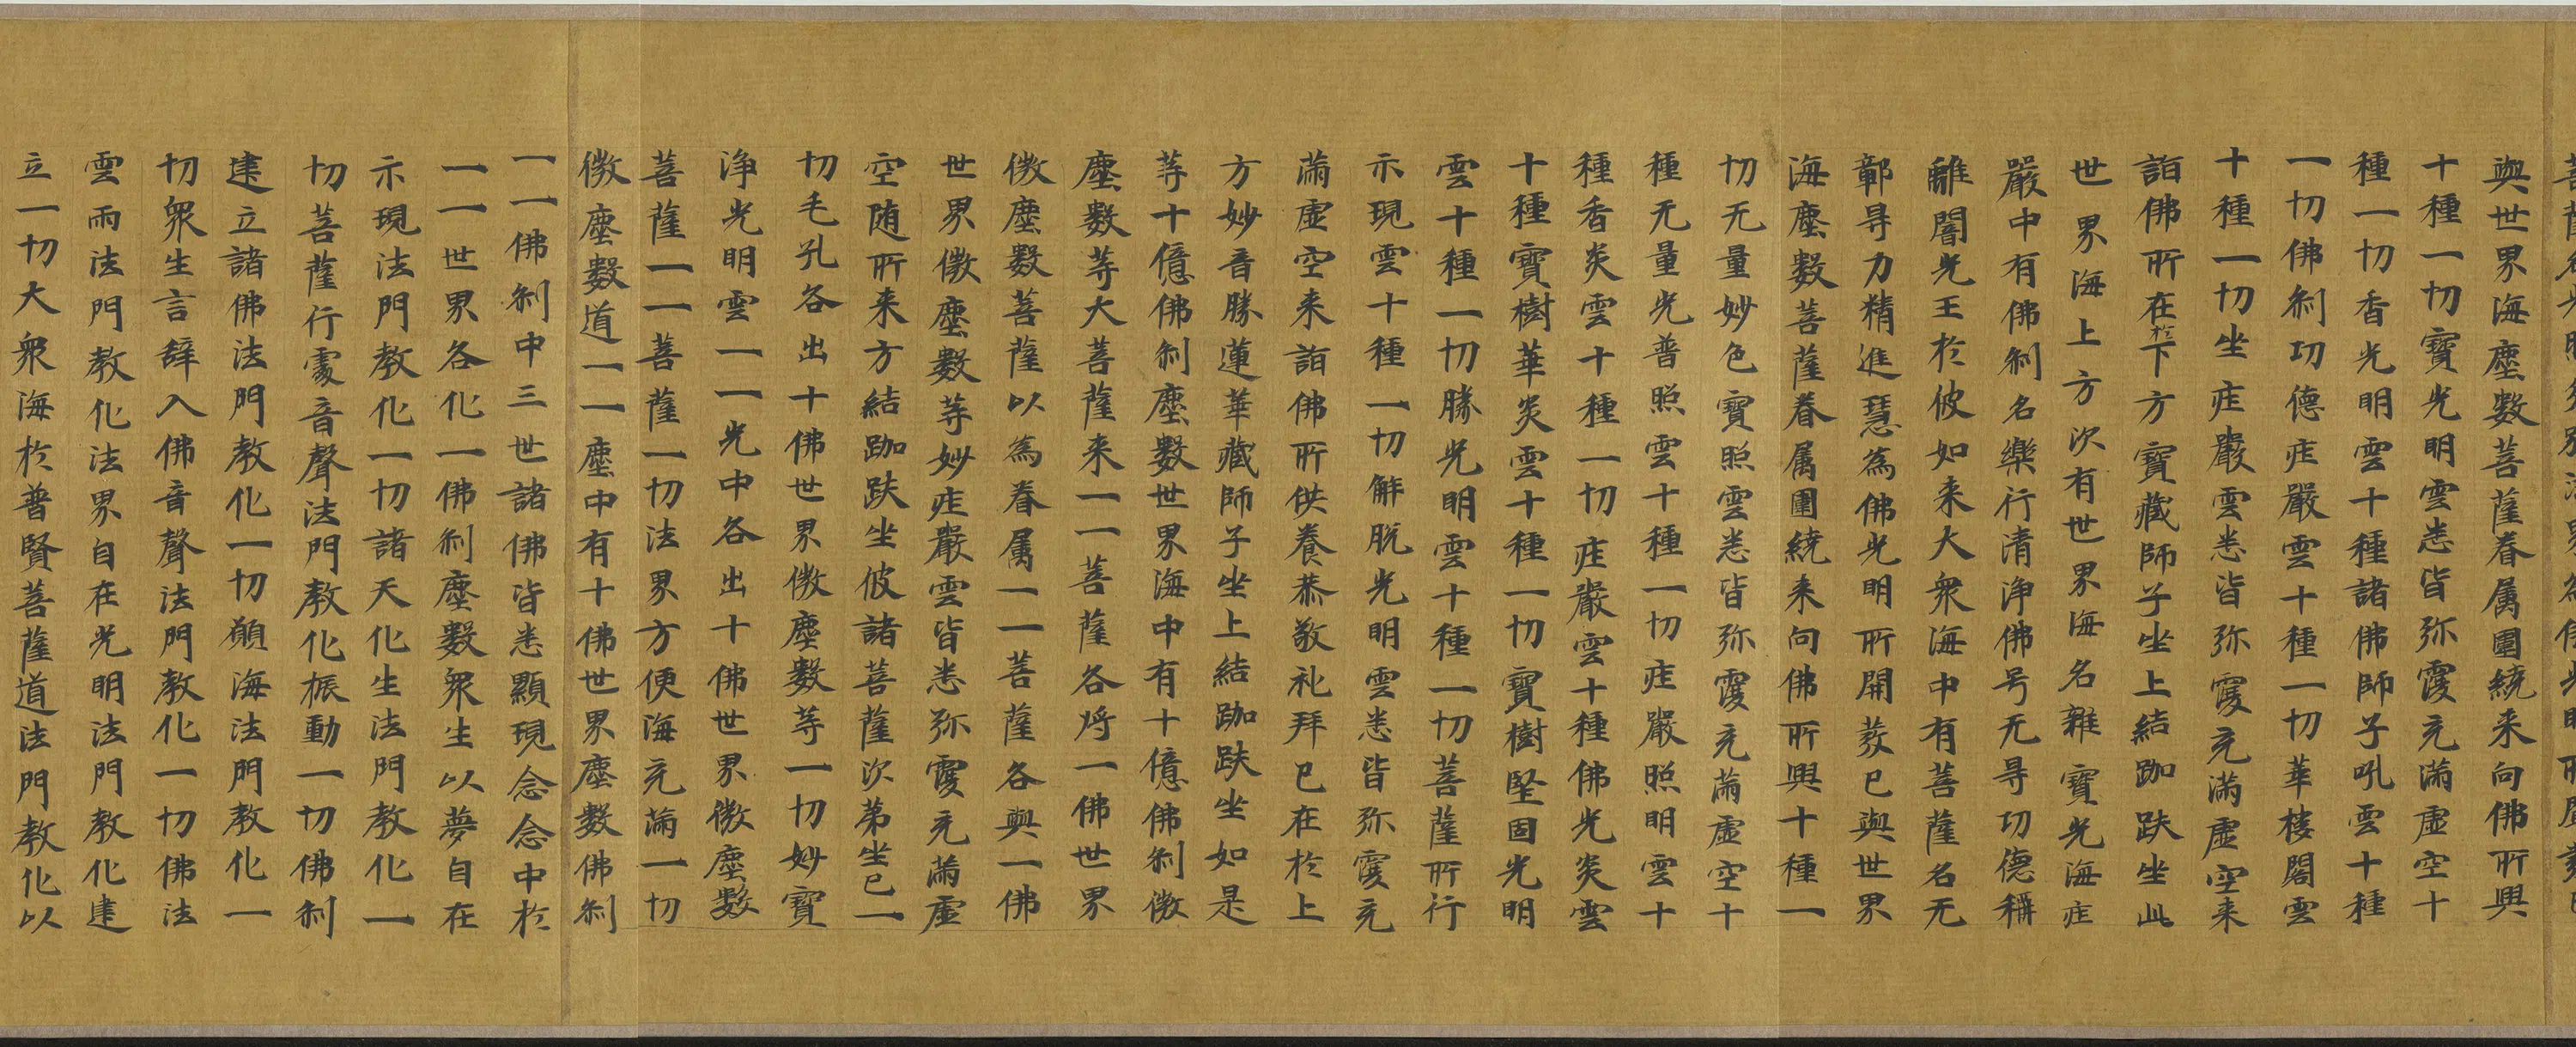 與世界海塵數菩薩眷属圍繞来向佛所興
十種一切寶光明雲悉皆弥覆充滿虚空十
種一切香光明雲十種諸佛師子吼雲十種
一切佛刹功德疘嚴雲十種一切華楼閣雲
十種一切坐疘嚴雲悉皆弥覆充滿虚空来
詣佛所在於下方寶藏師子坐上結跏趺坐此
世界海上方次有世界海名雜寶光海疘
嚴中有佛刹名樂行清淨佛号无㝵功德稱
離闇光王於彼如来大衆海中有菩薩名无
鄣㝵力精進慧為佛光明所開𤼵已與世界
海塵數菩薩眷属圍繞来向佛所興十種一
切无量妙色寶照雲悉皆弥覆充滿虚空十
種无量光普照雲十種一切疘嚴照明雲十
種香炎雲十種一切疘嚴雲十種佛光炎雲
十種寶樹華炎雲十種一切寶樹堅固光明
雲十種一切勝光明雲十種一切菩薩所行
示現雲十種一切解脫光明雲悉皆弥覆充
滿虚空来詣佛所供養恭敬礼拜已在於上
方妙音勝蓮華藏師子坐上結跏趺坐如是
等十億佛刹塵數世界海中有十億佛刹微
塵數等大菩薩来一一菩薩各将一佛世界
微塵數菩薩以為眷属一一菩薩各與一佛
世界微塵數等妙疘嚴雲皆悉弥覆充滿虚
空随所来方結跏趺坐彼諸菩薩次第坐已一
切毛孔各出十佛世界微塵數等一切妙寶
淨光明雲一一光中各出十佛世界微塵數
菩薩一一菩薩一切法界方便海充滿一切
微塵數道一一塵中有十佛世界塵數佛刹
一一佛刹中三世諸佛皆悉顯現念念中於
一一世界各化一佛刹塵數衆生以夢自在
示現法門教化一切諸天化生法門教化一
切菩薩行處音聲法門教化振動一切佛刹
建立諸佛法門教化一切願海法門教化一
切衆生言辞入佛音聲法門教化一切佛法
雲雨法門教化法界自在光明法門教化建
立一切大衆海於普賢菩薩道法門教化以